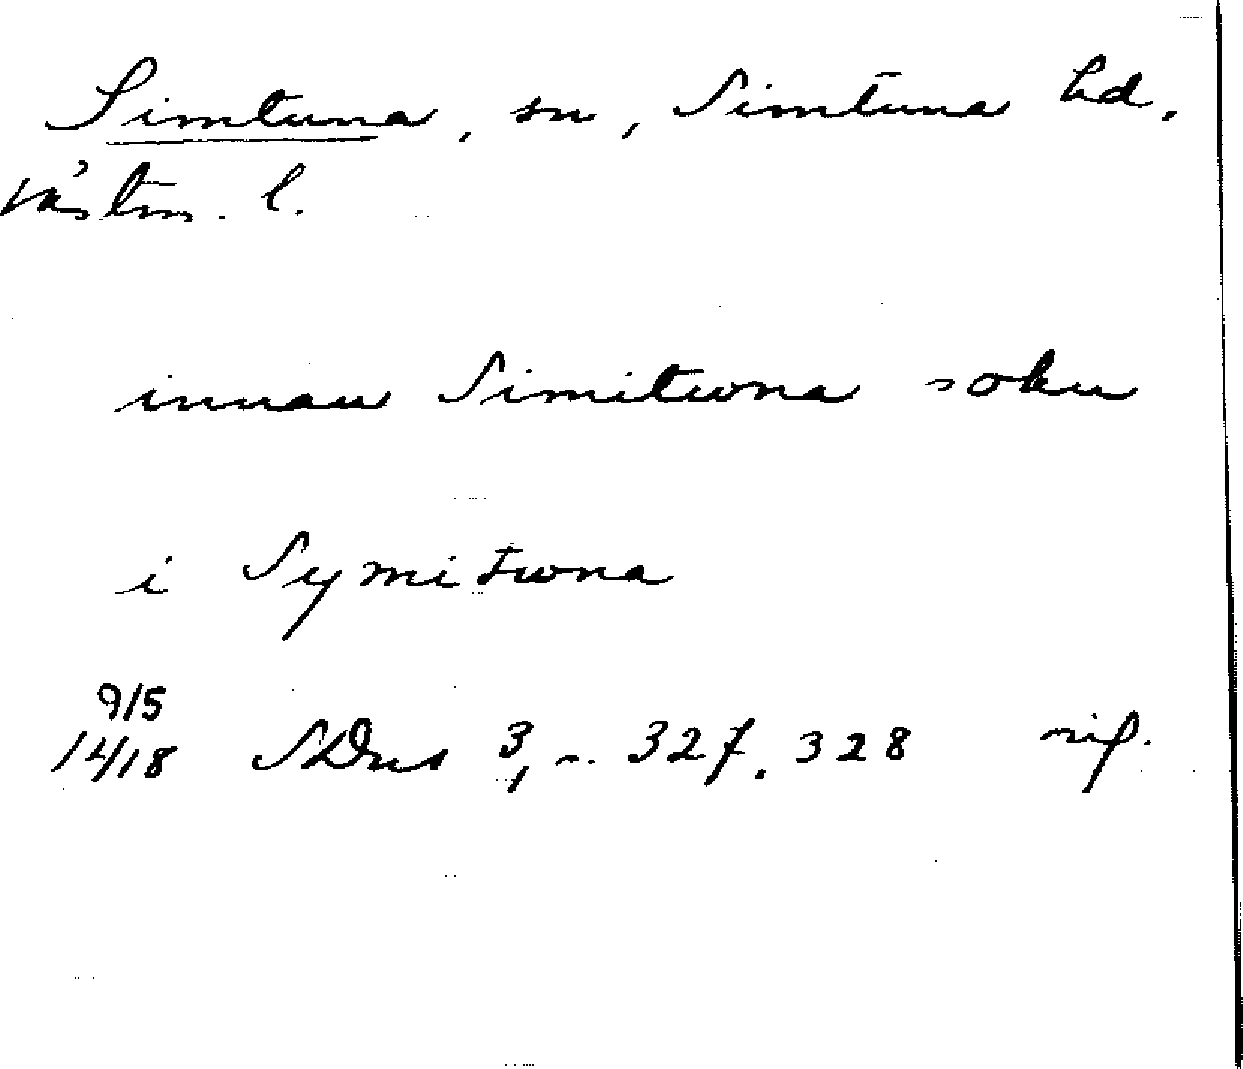 Simtuna, sn, Simtuna hd.
Västm. l.
innan Simitwna sokn
i Symitwna
9/5
1418 SDns 3, s. 327, 328 nif.